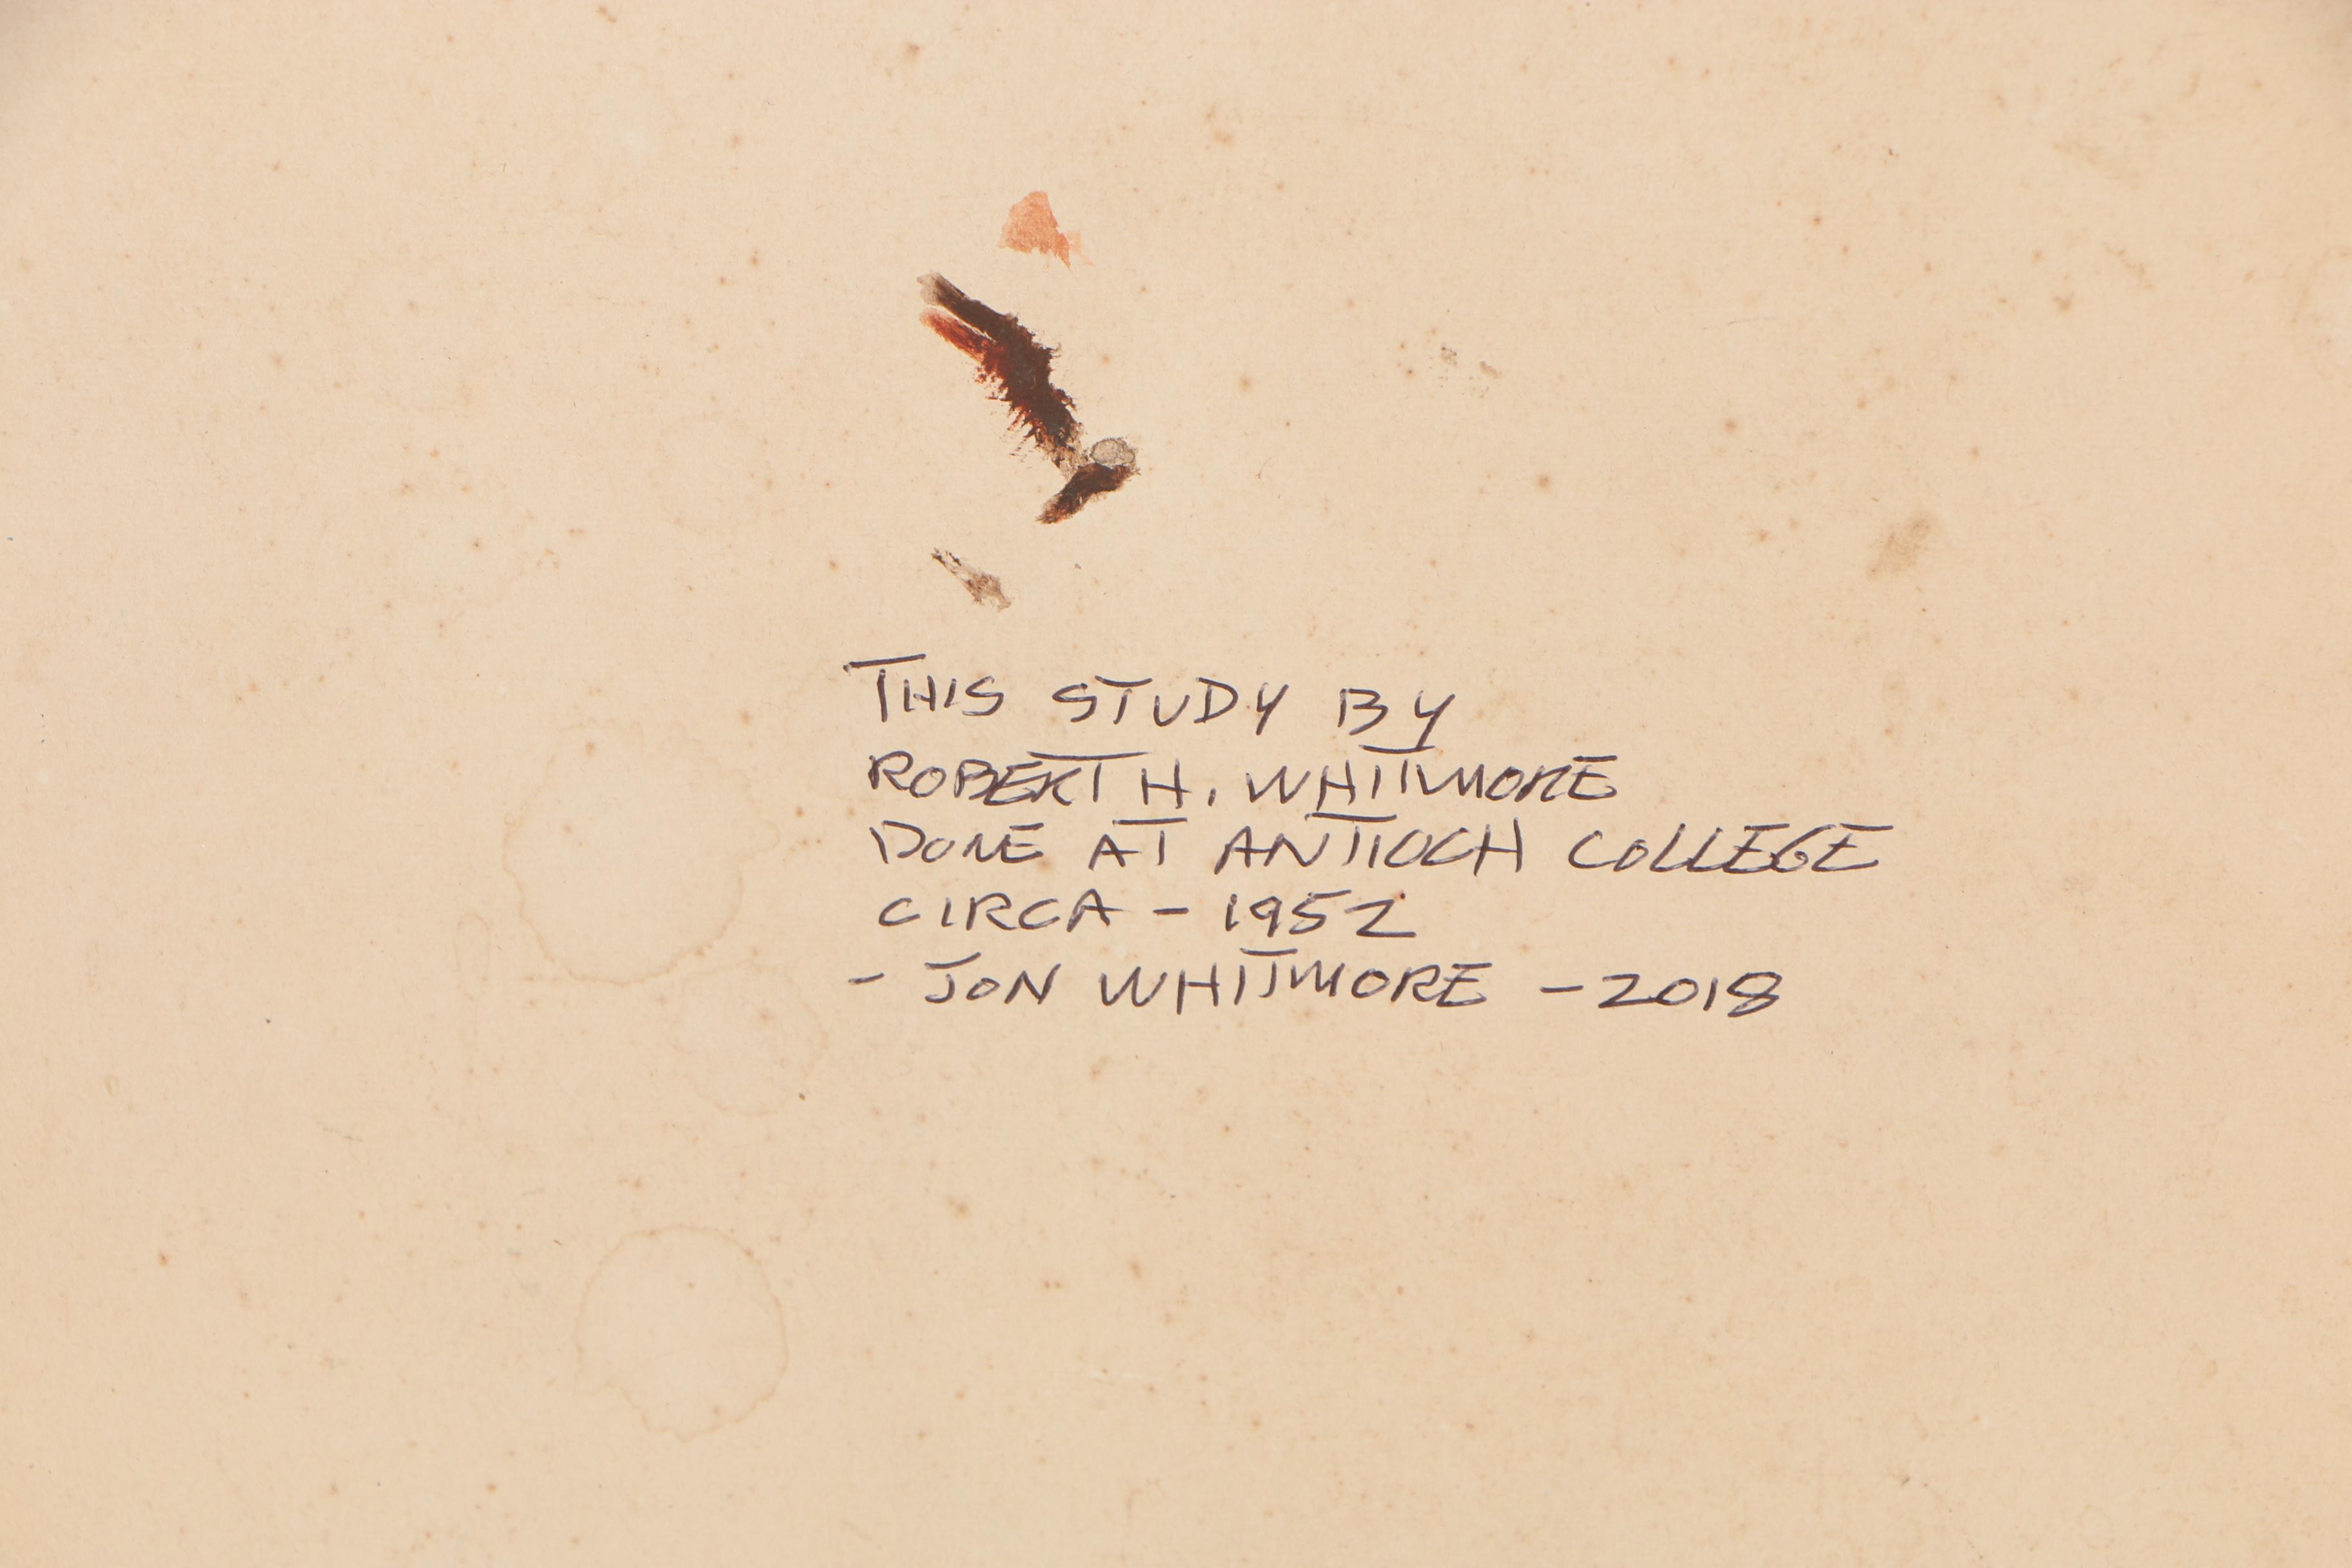 THIS STUDY BY
ROBERT H. WHITMORE
DONE AT ANTIOCH COLLEGE
CIRCA - 1952
- JON WHITMORE - 2018